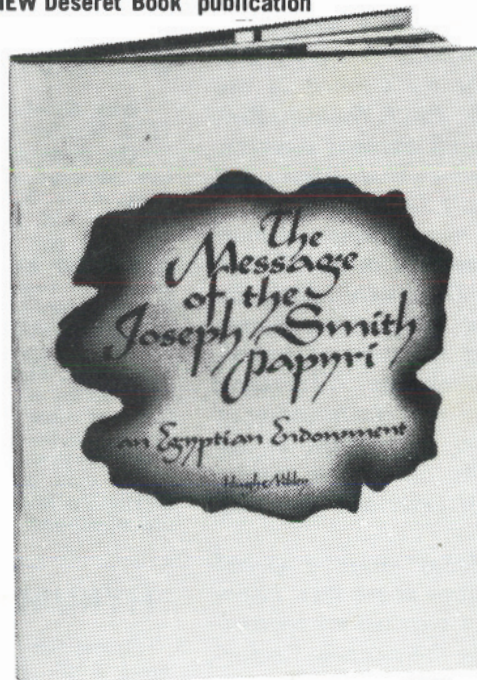 NEW Deseret Book publication
The
Message
of the
Joseph Smith
Papyri
an Egyptian Endowment
Hugh Nibley